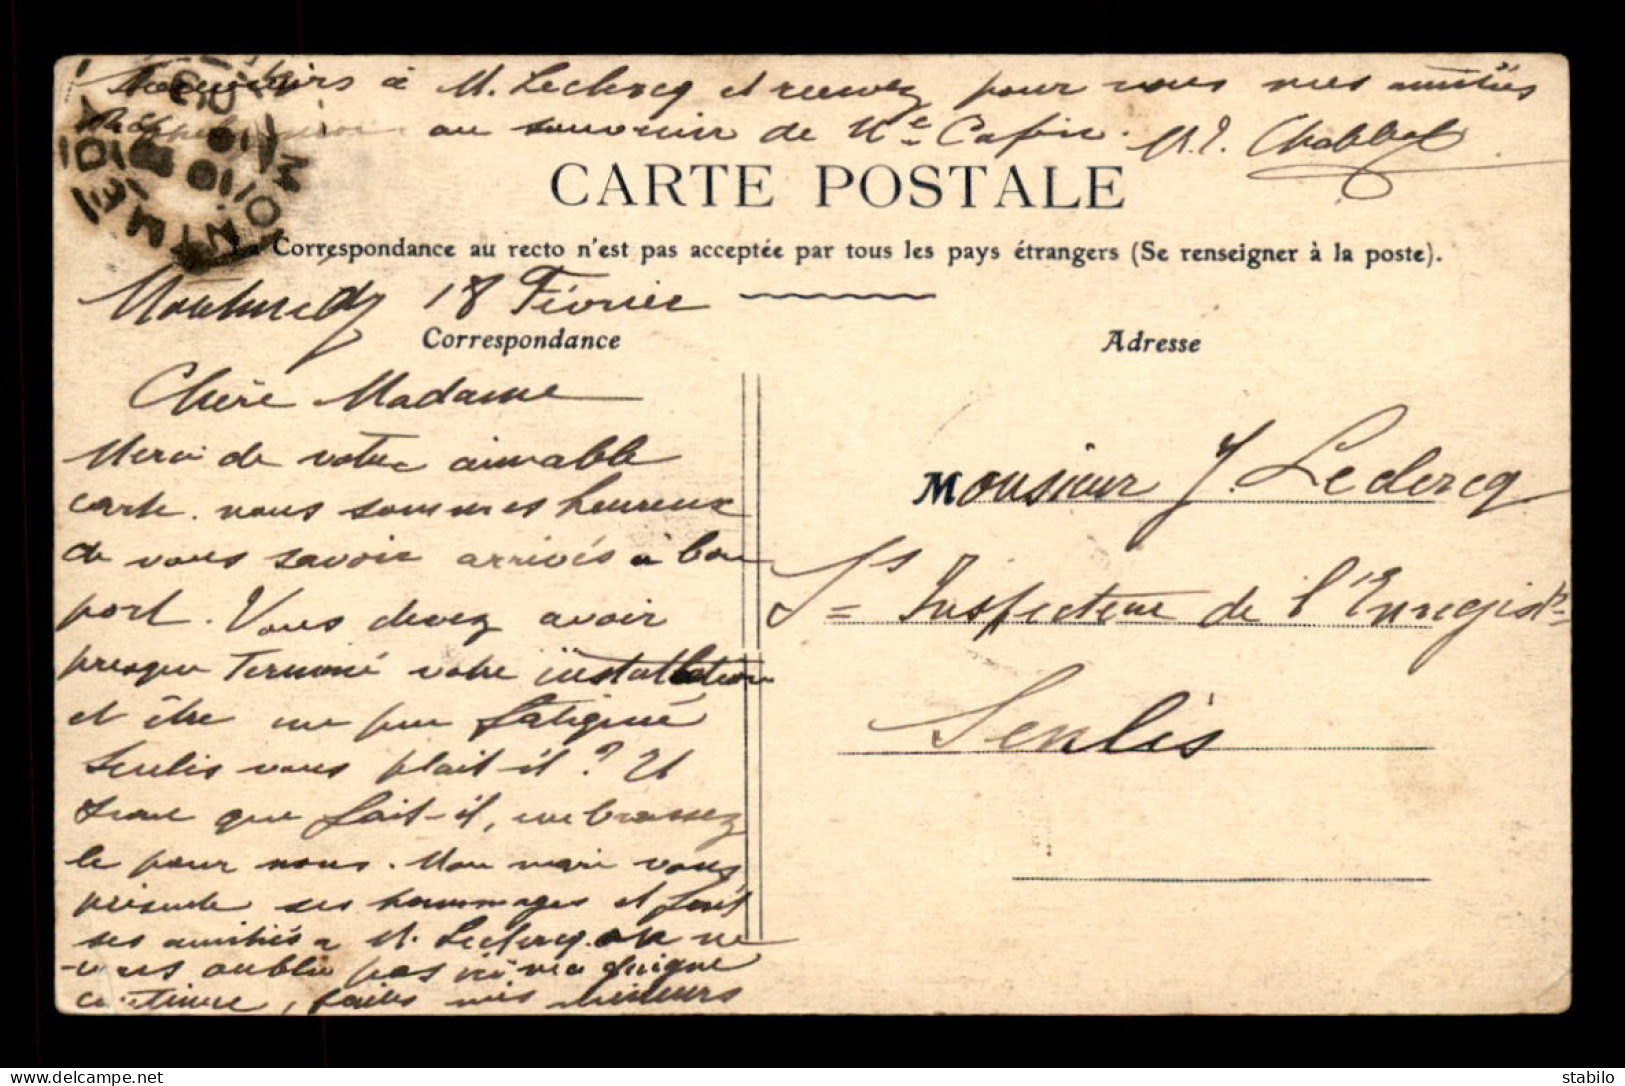 meilleurs
souvenirs à M. Leclercq et recevez pour vous mes amitiés
au souvenir de Me Cafin. M. J. Chabbal
CARTE POSTALE
La Correspondance au recto n'est pas acceptée par tous les pays étrangers (Se renseigner à la poste).
Montmédy 18 Février
Correspondance
Adresse
Chère Madame
Merci de votre aimable
carte. nous sommes heureux
de vous savoir arrivés à bon
port. Vous devez avoir
presque Terminé votre installation
et être un peu fatigué
Senlis vous plait-il? Et
que fait-il, embrassez
le pour nous. Mon mari vous
présente ses hommages et fait
ses amitiés a M. Leclercq. on ne
vous oublie pas ici ma guigne
continue, faites mes meilleurs
Monsieur J. Leclercq
Ss Inspecteur de l'Enregist
Senlis
delcampe.net
stabilo